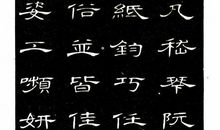 丸嵇琴阮
紙鈞巧任
俗並皆佳
姿工嚬妍